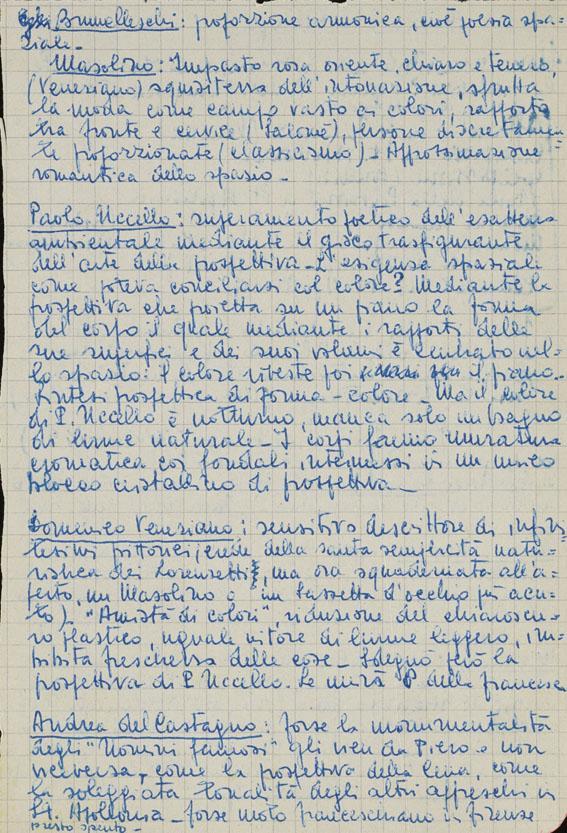 Brunelleschi: proporzione armonica, cioè poesia spa-
ziale -
Masolino: Impasto rosa oriente, chiaro e tenero,
(Veneziano) squisitezza dell'intonazione, sfrutta
la moda come campo vasto di colori, rapporto
tra fronte e cervice (Salomè), persone discretamen
te proporzionate (classicismo) - Approssimazione
romantica dello spazio -
Paolo Uccello: superamento poetico dell'esattezza
ambientale mediante il gioco trasfigurante
dell'arte della prospettiva - L'esigenza spaziale
come poteva conciliarsi col colore? Mediante la
prospettiva che proietta su un piano la forma
del corpo il quale mediante i rapporti delle
sue superfici e dei suoi volumi è centrato nel-
lo spazio: il colore riveste poi il piano -
Sintesi prospettica di forma - colore - Ma il colore
di P. Uccello è notturno, manca solo un bagno
di lume naturale - I corpi fanno muratura
cromatica coi fondali, intermessi in un unico
blocco cristallino di prospettiva -
Domenico Veneziano: sensitivo descrittore di infini-
tesimi pittorici (erede della santa semplicità natu-
ristica dei Lorenzetti, ma ora squadernata all'a-
perto, un Masolino o un Sassetta d'occhio più acu-
to) - "Amistà di colori", riduzione del chiaroscu-
ro plastico, uguale nitore di lume leggero, im-
bibita freschezza delle cose - Sdegnò però la
prospettiva di P. Uccello. Le unirà P. della Francesca
Andrea del Castagno: forse la monumentalità
degli "Uomini famosi" gli vien da Piero e non
viceversa, come la prospettiva della Cena, come
la soleggiata tonalità degli altri affreschi in
St. Apollonia - forse moto francescano in Firenze
presto spento -